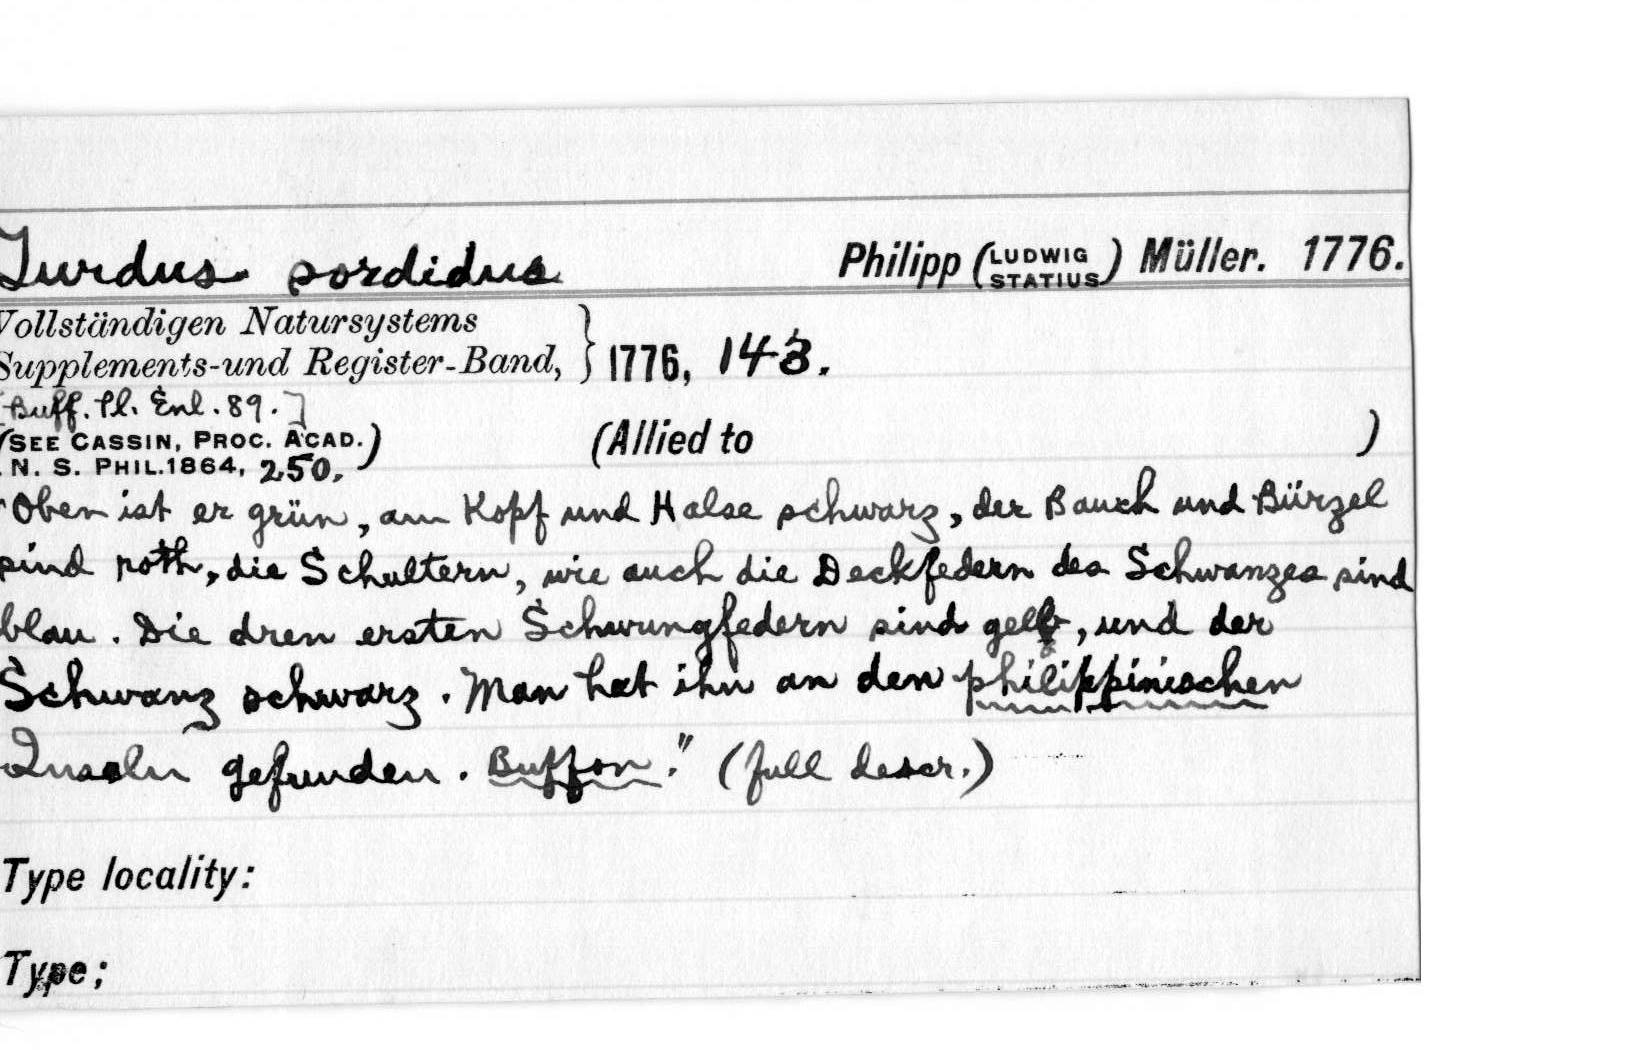 Turdus sordidus Philipp (LUDWIG STATIUS) Müller. 1776.
Vollständigen Natursystems
Supplements-und Register-Band, } 1776, 143.
[Buff. Pl. Enl. 89.]
(SEE CASSIN, PROC. ACAD.
N. S. PHIL. 1864, 250.) (Allied to )
"Oben ist er grün, am Kopf und Halse schwarz, der Bauch und Bürzel
sind roth, die Schultern, wie auch die Deckfedern des Schwanzes sind
blau. Die dren ersten Schwungfedern sind gelb, und der
Schwanz schwarz. Man hat ihn an den philippinischen
Inseln gefunden. Buffon." (full descr.)
Type locality:
Type;